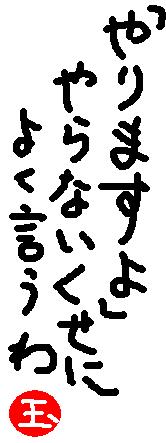 「やりますよ」
やらないくせに
よく言うわ
玉